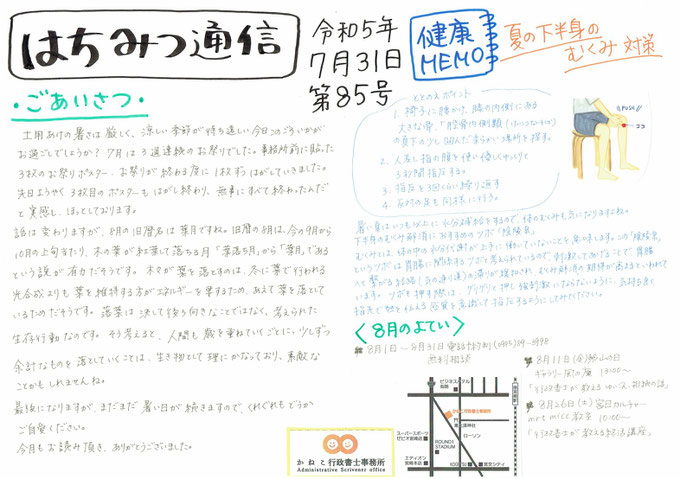 はちみつ通信
令和5年
7月31日
第85号
健康
MEMO
夏の下半身の
むくみ対策
・ごあいさつ・
土用あけの暑さは厳しく、涼しい季節が待ち遠しい今日このごろいかが
お過ごしでしょうか？7月は3週連続のお祭りでした。事務所前に貼った
3枚のお祭りポスター、お祭りが終わる度に1枚ずつはがしていきました。
先日ようやく3枚目のポスターもはがし終わり、無事にすべて終わったんだ
と実感し、ほっとしております。
話は変わりますが、8月の旧暦名は葉月ですね。旧暦の8月は、今の9月から
10月の上旬にあたり、木の葉が紅葉して落ちる月「葉落ち月」から「葉月」である
という説が有力だそうです。木々が葉を落とすのは、冬に葉で行われる
光合成よりも葉を維持する方がエネルギーを要するため、あえて葉を落として
いるためだそうです。落葉は決して後ろ向きなことではなく、考えられた
生存行動なのです。そう考えると、人間も歳を重ねていくごとに、少しずつ
余計なものを落としていくことは、生き物として理にかなっており、素敵な
ことかもしれませんね。
最後になりますが、まだまだ暑い日が続きますので、くれぐれもどうか
ご自愛ください。
今月もお読み頂き、ありがとうございました。
ととのえポイント
1. 椅子に腰かけ、膝の内側にある
大きな骨、「脛骨内側顆（けいこつないそくか）
の真下の少し凹んだ柔らかい場所を探す。
2. 人差し指の腹を使い優しくゆっくりと
3秒間指圧する。
3. 指圧を3回くらい繰り返す
4. 反対の足も同様に行う。
PUSH
ココ
暑い夏はいつも以上に水分補給をするので、体のむくみも気になりますよね。
下半身のむくみ解消におすすめのツボ「陰陵泉」
むくみとは、体の中の水分代謝が上手に働いていないことを意味します。この「陰陵泉」
というツボは胃腸に関するツボと考えられているので、刺激してあげることで胃腸
ツボを押す際は、グリグリと押し
〈8月のよてい〉
8月1日～8月31日 電話
無料相談
8月11日(金)山の日
13:00～
8月26日(土)宮日カルチャー
mrt micc教室 10:00～
「行政書士が教える終活講座」
かねこ行政書士事務所
Administrative Scrivener office
ビジネスホテル
かねこ行政書士事務所
スーパースポーツ
ゼビオ宮崎店
ROUND1
STADIUM
ローソン
エディオン
宮崎本店
宮交シティ